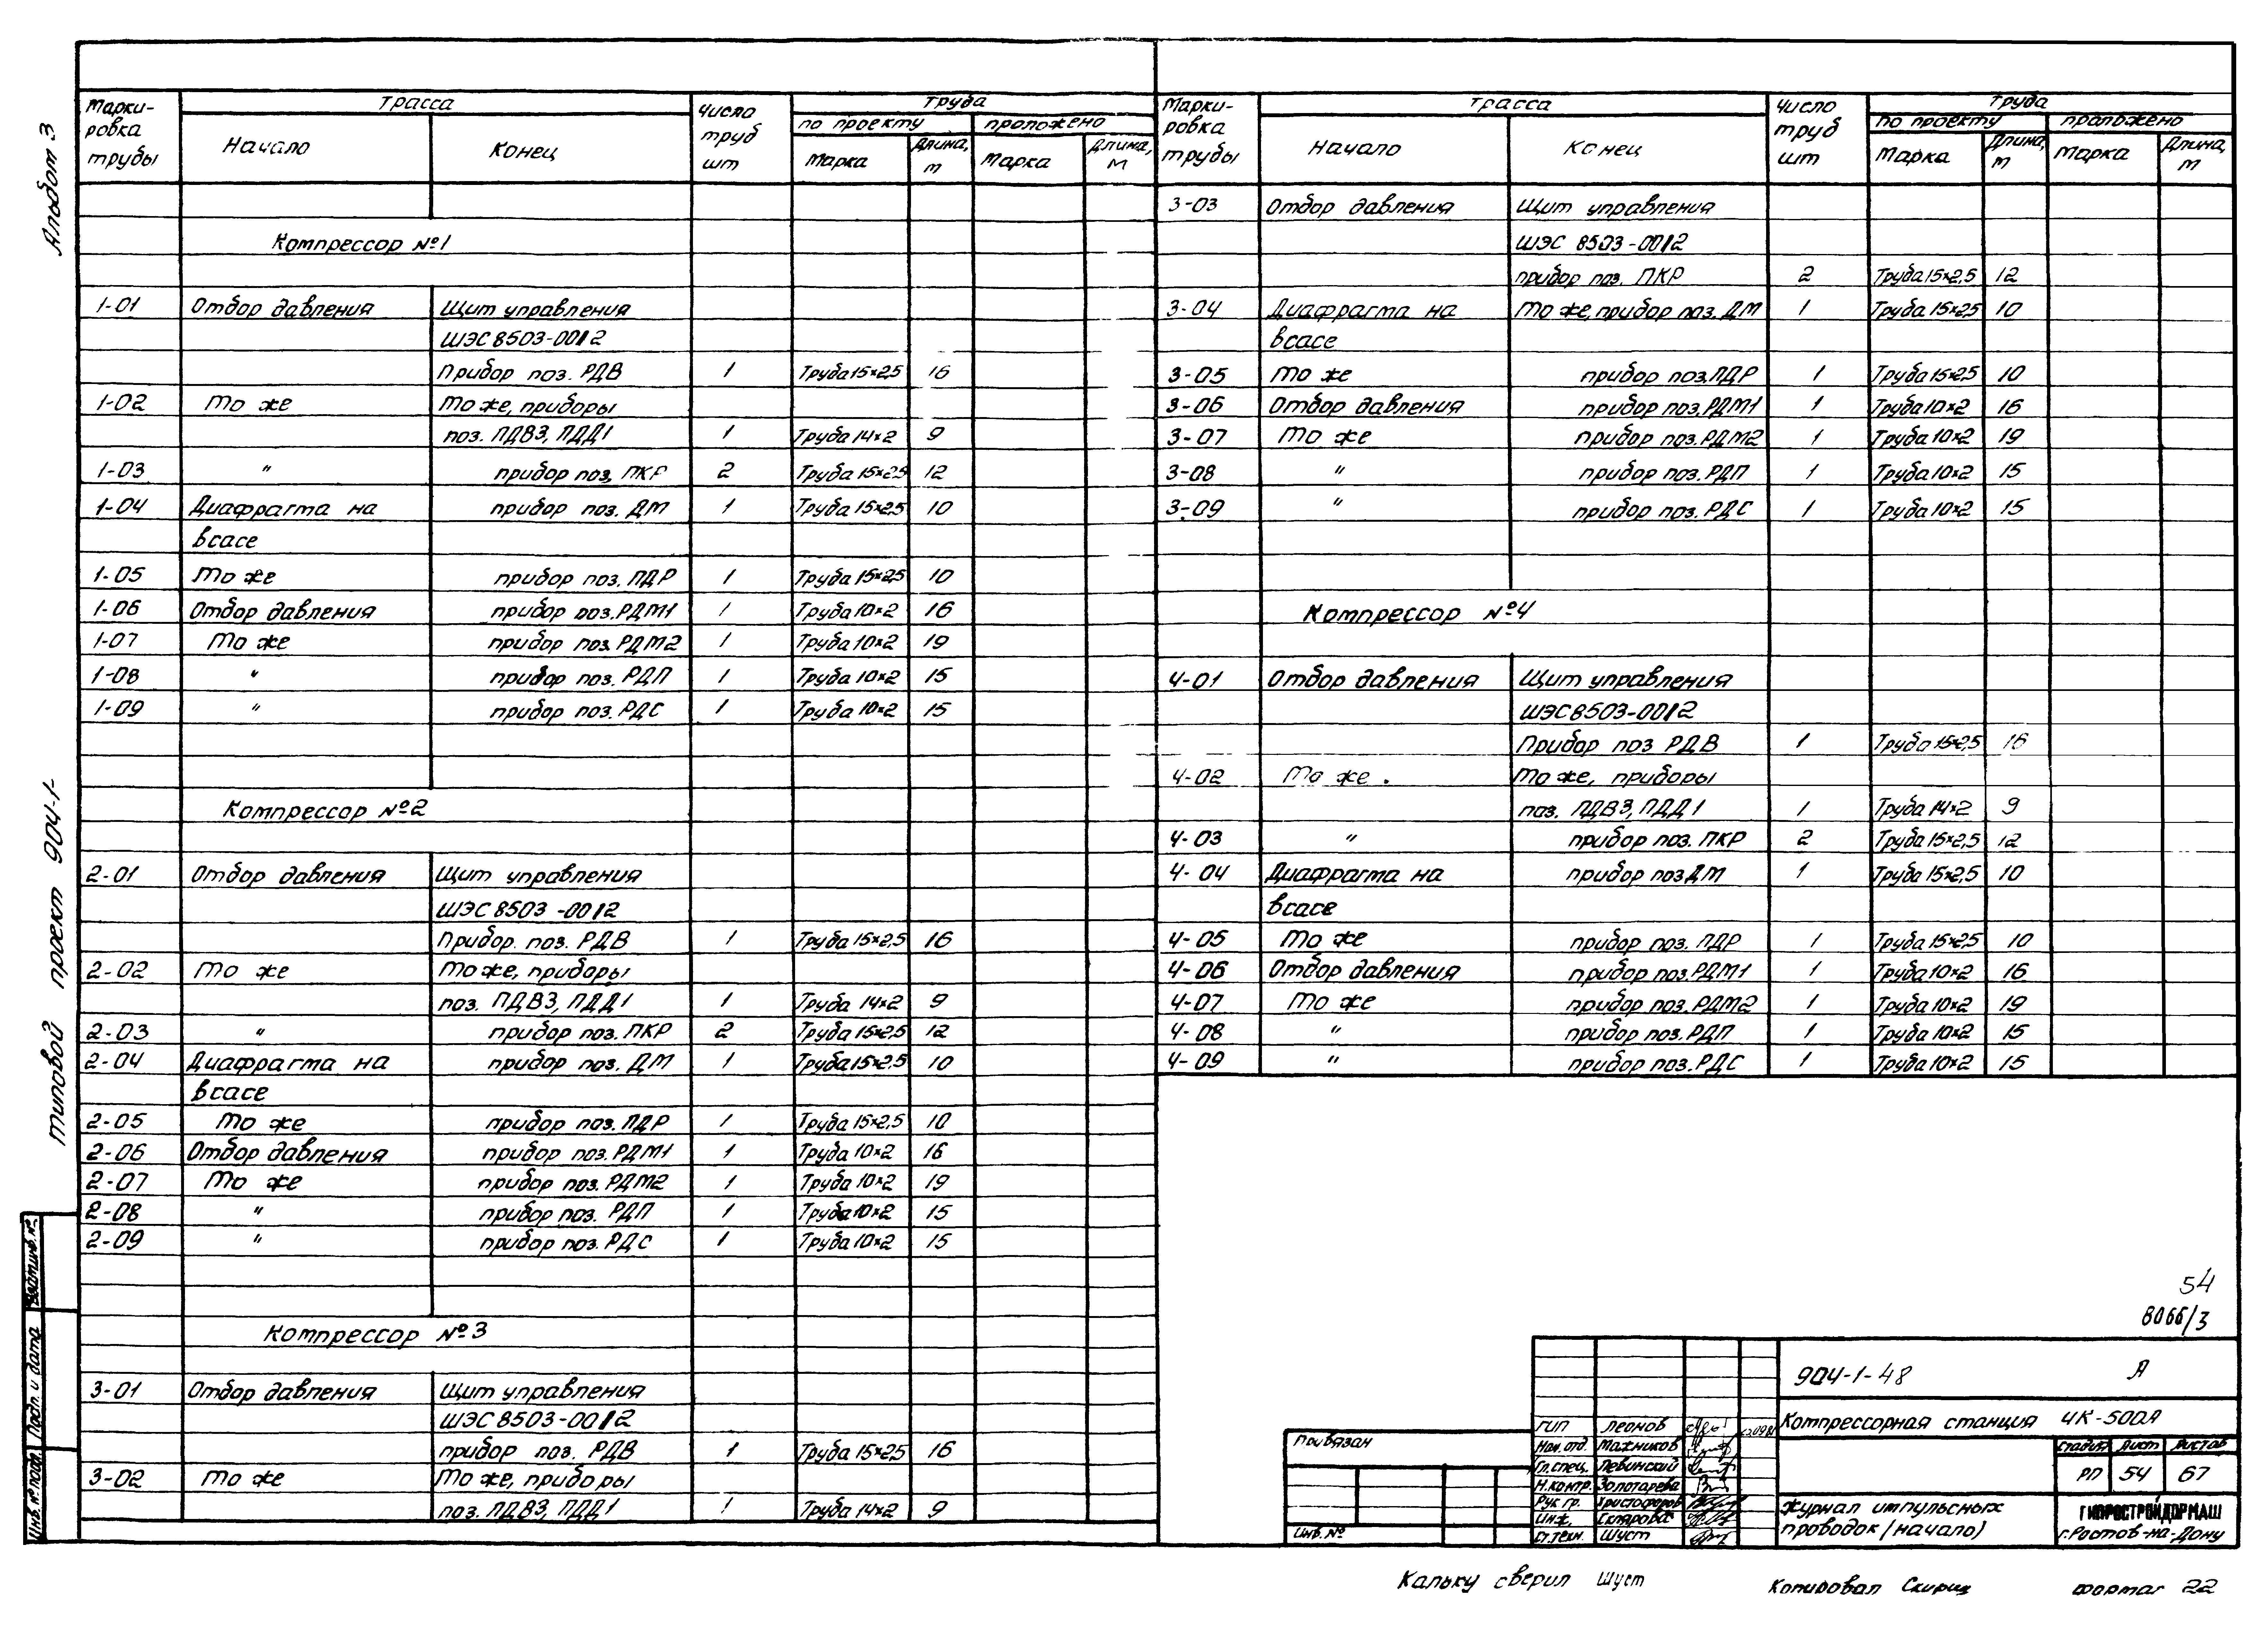 Альбом 3
Типовой проект 904-1-
Марки-ровка трубы | Трасса | Число труб шт | Труба
Начало | Конец | по проекту | проложено
Марка | Длина, м | Марка | Длина, м
Компрессор №1
1-01 Отбор давления Щит управления
ШЭС 8503-0012
Прибор поз. РДВ 1 Труба 15×2,5 16
1-02 То же То же, приборы
поз. ПДВ3, ПДД1 1 Труба 14×2 9
1-03 " прибор поз. ПКР 2 Труба 15×2,5 12
1-04 Диафрагма на прибор поз. ДМ 1 Труба 15×2,5 10
всасе
1-05 То же прибор поз. ПДР 1 Труба 15×2,5 10
1-06 Отбор давления прибор поз. РДМ1 1 Труба 10×2 16
1-07 То же прибор поз. РДМ2 1 Труба 10×2 19
1-08 " прибор поз. РДП 1 Труба 10×2 15
1-09 " прибор поз. РДС 1 Труба 10×2 15
Компрессор №2
2-01 Отбор давления Щит управления
ШЭС 8503-0012
Прибор. поз. РДВ 1 Труба 15×2,5 16
2-02 То же То же, приборы
поз. ПДВ3, ПДД1 1 Труба 14×2 9
2-03 " прибор поз. ПКР 2 Труба 15×2,5 12
2-04 Диафрагма на прибор поз. ДМ 1 Труба 15×2,5 10
всасе
2-05 То же прибор поз. ПДР 1 Труба 15×2,5 10
2-06 Отбор давления прибор поз. РДМ1 1 Труба 10×2 16
2-07 То же прибор поз. РДМ2 1 Труба 10×2 19
2-08 " прибор поз. РДП 1 Труба 10×2 15
2-09 " прибор поз. РДС 1 Труба 10×2 15
Компрессор №3
3-01 Отбор давления Щит управления
ШЭС 8503-0012
прибор поз. РДВ 1 Труба 15×2,5 16
3-02 То же То же, приборы
поз. ПДВ3, ПДД1 1 Труба 14×2 9
Марки-ровка трубы | Трасса | Число труб шт | Труба
Начало | Конец | по проекту | проложено
Марка | Длина, м | Марка | Длина, м
3-03 Отбор давления Щит управления
ШЭС 8503-0012
прибор поз. ПКР 2 Труба 15×2,5 12
3-04 Диафрагма на То же, прибор поз. ДМ 1 Труба 15×2,5 10
всасе
3-05 То же прибор поз. ПДР 1 Труба 15×2,5 10
3-06 Отбор давления прибор поз. РДМ1 1 Труба 10×2 16
3-07 То же прибор поз. РДМ2 1 Труба 10×2 19
3-08 " прибор поз. РДП 1 Труба 10×2 15
3-09 " прибор поз. РДС 1 Труба 10×2 15
Компрессор №4
4-01 Отбор давления Щит управления
ШЭС 8503-0012
Прибор поз РДВ 1 Труба 15×2,5 16
4-02 То же То же, приборы
поз. ПДВ3, ПДД1 1 Труба 14×2 9
4-03 " прибор поз. ПКР 2 Труба 15×2,5 12
4-04 Диафрагма на прибор поз ДМ 1 Труба 15×2,5 10
всасе
4-05 То же прибор поз. ПДР 1 Труба 15×2,5 10
4-06 Отбор давления прибор поз. РДМ1 1 Труба 10×2 16
4-07 То же прибор поз. РДМ2 1 Труба 10×2 19
4-08 " прибор поз. РДП 1 Труба 10×2 15
4-09 " прибор поз. РДС 1 Труба 10×2 15
54
8066/3
904-1-48 А
Компрессорная станция 4К-500А
Стадия Лист Листов
РП 54 67
Журнал импульсных
проводок (начало)
ГИПРОСТРОЙДОРМАШ
г. Ростов-на-Дону
ГИП Леонов
Нач. отд. Мажников
Гл. спец. Левинский
Н. контр. Золотарева
Рук гр. Христофоров
Инж. Склярова
Ст. техн. Шуст
Привязан
Инв. №
Взам инв. №
Подп. и дата
Инв. № подл.
Кальку сверил Шуст
Копировал
Формат 22